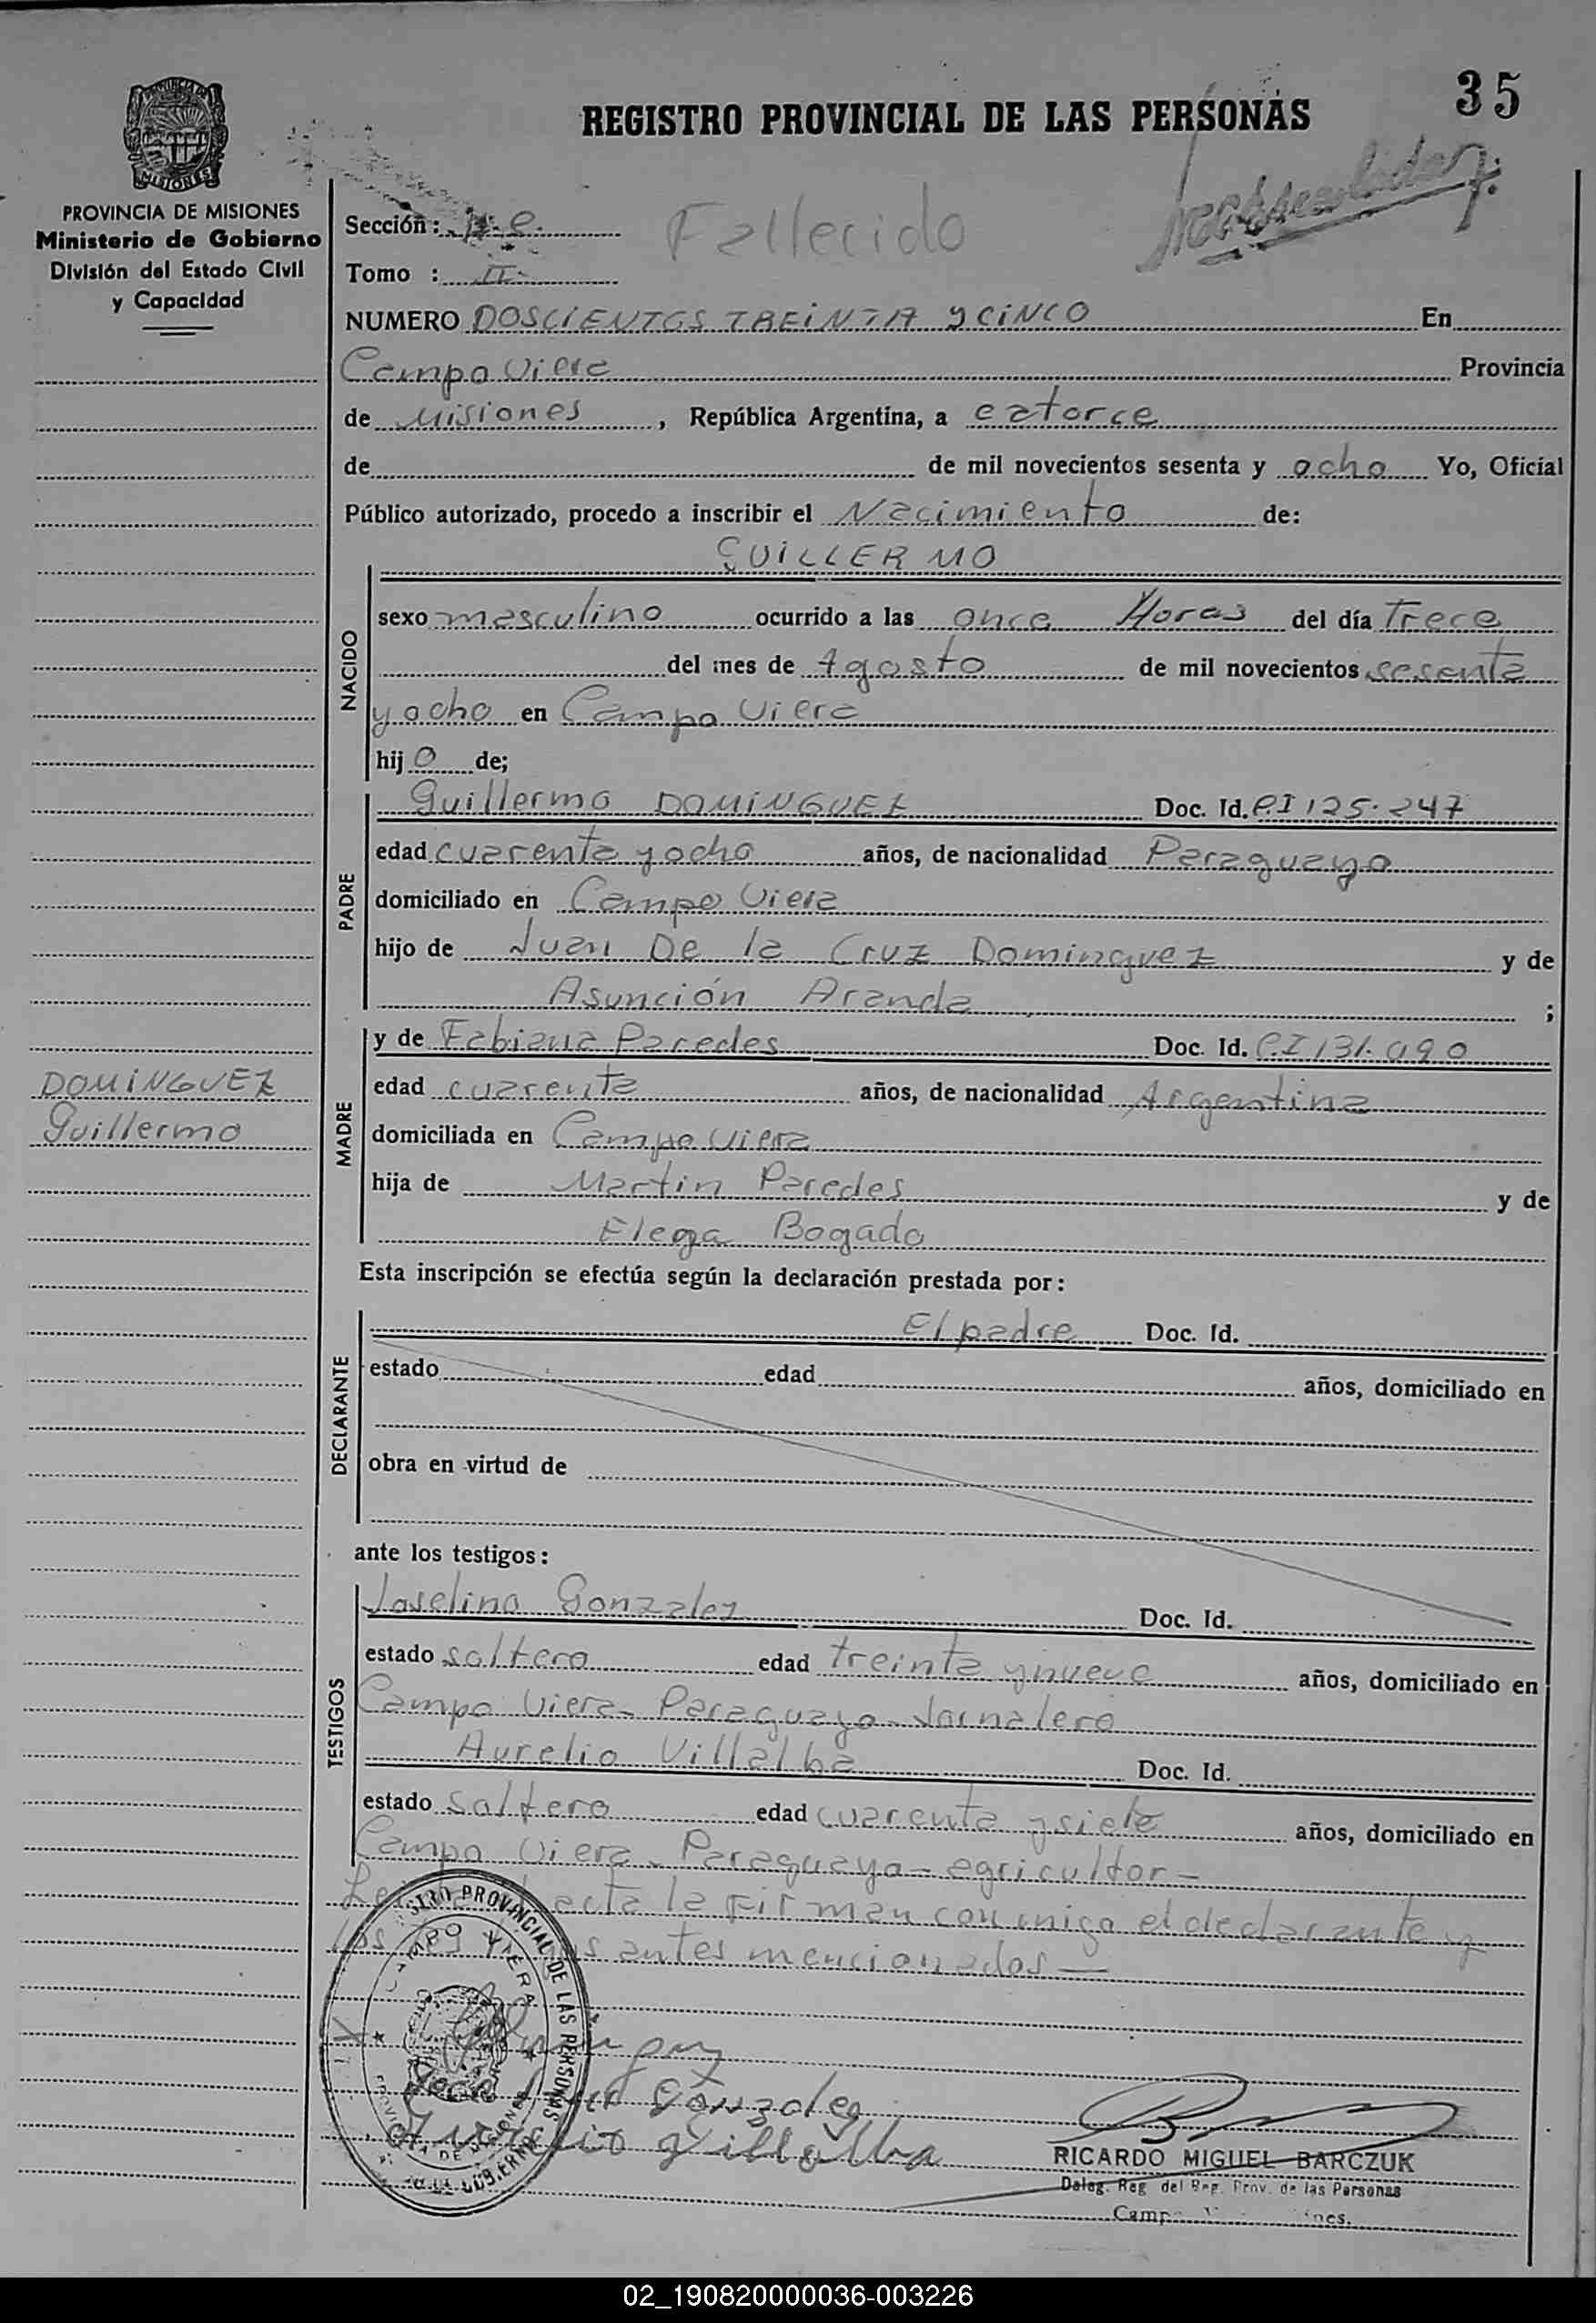 35
REGISTRO PROVINCIAL DE LAS PERSONAS
PROVINCIA DE MISIONES
Ministerio de Gobierno
División del Estado Civil
y Capacidad
Sección:
Fallecido
Tomo : II
NUMERO DOSCIENTOS TREINTA Y CINCO En
Campo Viera Provincia
de Misiones, República Argentina, a catorce
de de mil novecientos sesenta y ocho Yo, Oficial
Público autorizado, procedo a inscribir el Nacimiento de:
GUILLERMO
NACIDO
sexo masculino ocurrido a las once Horas del día Trece
del mes de Agosto de mil novecientos sesenta
y ocho en Campo Viera
hijo de;
PADRE
Guillermo DOMINGUEZ Doc. Id. C.I 125.247
edad cuarenta y ocho años, de nacionalidad Paraguayo
domiciliado en Campo Viera
hijo de Juan De la Cruz Dominguez y de
Asunción Aranda ;
MADRE
y de Fabiana Paredes Doc. Id. C.I 131.090
DOMINGUEZ
Guillermo
edad cuarenta años, de nacionalidad Argentina
domiciliada en Campo Viera
hija de Martin Paredes y de
Bogado
Esta inscripción se efectúa según la declaración prestada por:
DECLARANTE
El padre Doc. Id.
estado edad años, domiciliado en
obra en virtud de
ante los testigos:
TESTIGOS
Joselino Gonzalez Doc. Id.
estado soltero edad treinta y nueve años, domiciliado en
Campo Viera - Paraguayo - Jornalero
Aurelio Villalba Doc. Id.
estado soltero edad cuarenta y siete años, domiciliado en
Campo Viera - Paraguayo - agricultor -
acta la firman conmigo el declarante y
los testigos antes mencionados —
REGISTRO PROVINCIAL DE LAS PERSONAS
CAMPO VIERA
PROVINCIA DE MISIONES
Gonzalez
Aurelio Villalba
RICARDO MIGUEL BARCZUK
Deleg. Reg. del Reg. Prov. de las Personas
02_190820000036-003226